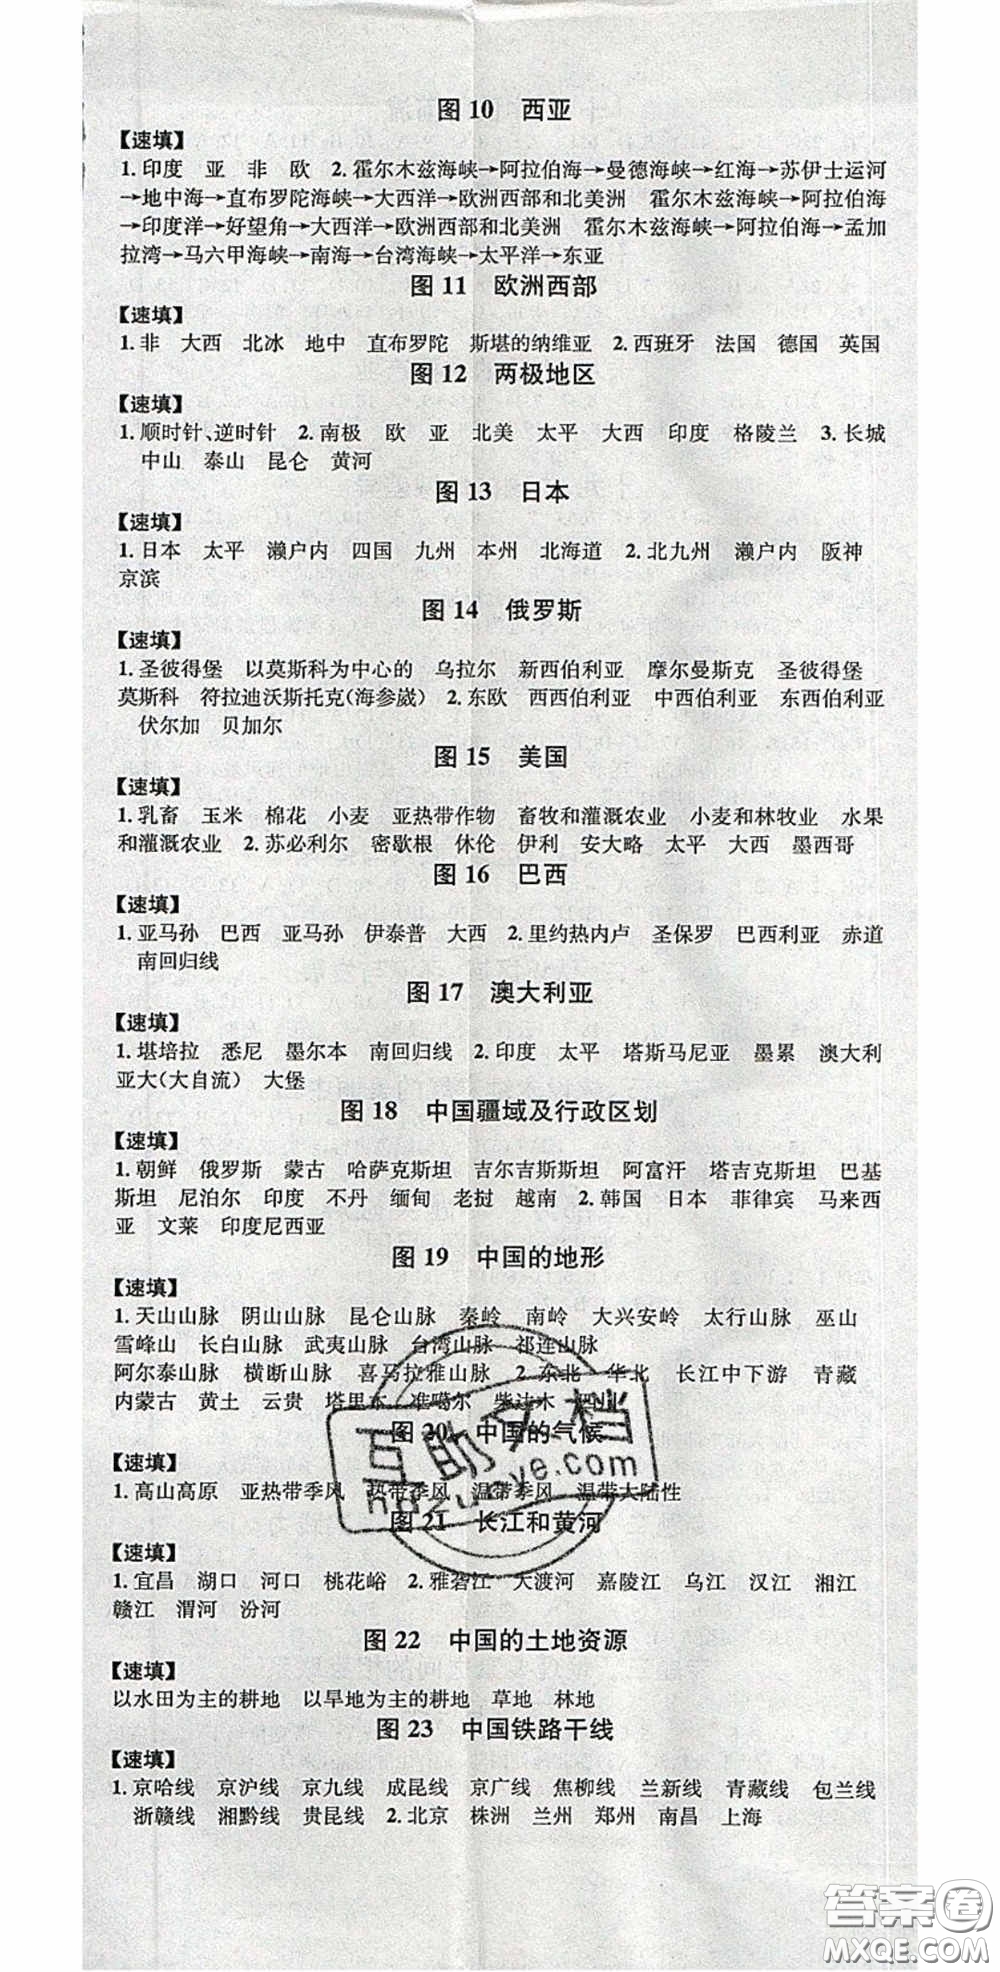 图 10 西亚
【速填】
1.印度 亚 非 欧 2.霍尔木兹海峡→阿拉伯海→曼德海峡→红海→苏伊士运河
→地中海→直布罗陀海峡→大西洋→欧洲西部和北美洲 霍尔木兹海峡→阿拉伯海
→印度洋→好望角→大西洋→欧洲西部和北美洲 霍尔木兹海峡→阿拉伯海→孟加
拉湾→马六甲海峡→南海→台湾海峡→太平洋→东亚
图 11 欧洲西部
【速填】
1.非 大西 北冰 地中 直布罗陀 斯堪的纳维亚 2.西班牙 法国 德国 英国
图 12 两极地区
【速填】
1.顺时针、逆时针 2.南极 欧 亚 北美 太平 大西 印度 格陵兰 3.长城
中山 泰山 昆仑 黄河
图 13 日本
【速填】
1.日本 太平 濑户内 四国 九州 本州 北海道 2.北九州 濑户内 阪神
京滨
图 14 俄罗斯
【速填】
1.圣彼得堡 以莫斯科为中心的 乌拉尔 新西伯利亚 摩尔曼斯克 圣彼得堡
莫斯科 符拉迪沃斯托克(海参崴) 2.东欧 西西伯利亚 中西伯利亚 东西伯利亚
伏尔加 贝加尔
图 15 美国
【速填】
1.乳畜 玉米 棉花 小麦 亚热带作物 畜牧和灌溉农业 小麦和林牧业 水果
和灌溉农业 2.苏必利尔 密歇根 休伦 伊利 安大略 太平 大西 墨西哥
图 16 巴西
【速填】
1.亚马孙 巴西 亚马孙 伊泰普 大西 2.里约热内卢 圣保罗 巴西利亚 赤道
南回归线
图 17 澳大利亚
【速填】
1.堪培拉 悉尼 墨尔本 南回归线 2.印度 太平 塔斯马尼亚 墨累 澳大利
亚大(大自流) 大堡
图 18 中国疆域及行政区划
【速填】
1.朝鲜 俄罗斯 蒙古 哈萨克斯坦 吉尔吉斯斯坦 阿富汗 塔吉克斯坦 巴基
斯坦 尼泊尔 印度 不丹 缅甸 老挝 越南 2.韩国 日本 菲律宾 马来西
亚 文莱 印度尼西亚
图 19 中国的地形
【速填】
1.天山山脉 阴山山脉 昆仑山脉 秦岭 南岭 大兴安岭 太行山脉 巫山
雪峰山 长白山脉 武夷山脉 台湾山脉 祁连山脉
阿尔泰山脉 横断山脉 喜马拉雅山脉 2.东北 华北 长江中下游 青藏
内蒙古 黄土 云贵 塔里木 准噶尔 柴达木 四川
图 20 中国的气候
【速填】
1.高山高原 亚热带季风 热带季风 温带季风 温带大陆性
图 21 长江和黄河
【速填】
1.宜昌 湖口 河口 桃花峪 2.雅砻江 大渡河 嘉陵江 乌江 汉江 湘江
赣江 渭河 汾河
图 22 中国的土地资源
【速填】
以水田为主的耕地 以旱地为主的耕地 草地 林地
图 23 中国铁路干线
【速填】
1.京哈线 京沪线 京九线 成昆线 京广线 焦柳线 兰新线 青藏线 包兰线
浙赣线 湘黔线 贵昆线 2.北京 株洲 兰州 郑州 南昌 上海
互助文档
hdzuoye.com
答案圈
MXQE.COM